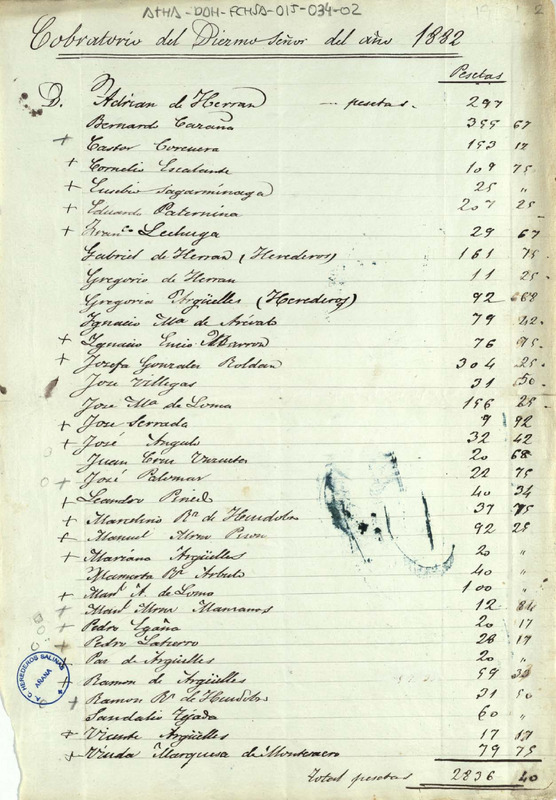 ATHA-DDH-FCHSA-015-034-02
2
Cobratorio del Diezmo Señor del año 1882
Pesetas
D. Adrian de Herran --- pesetas. 297
Bernardo Cazaña 355 67
+ Castor Corcuera 153 17
+ Cornelio Escalante 109 75
+ Eusebio Sagarmínaga 25 "
+ Eduardo Paternina 207 25
+ Franco. Lechuga 29 67
Gabriel de Herran (Herederos) 161 75
Gregorio de Herran 11 25
Gregoria Argüelles (Herederos) 92
Ignacio Ma. de Arévalo 79 42
+ Ignacio 76 75
+ Josefa Gonzalez Roldan 304 25
José Villegas 31 50
José Ma. de Loma 156 25
+ José Serrada 9 92
+ José Angulo 32 42
Juan Cruz 20 68
+ José Palomar 22 75
+ Leandro Pined 40 34
+ Marcelino Rz. de 37 75
+ Manuel 92 25
+ Mariano Argüelles 20 "
Mamerta Rz. Arbulo 40 "
+ Manl. A. de Loma 100 "
+ Manl. Manzanos 12
+ Pedro Egaña 20 17
+ Pedro 26 17
+ Paz de Argüelles 20 "
+ Ramon de Argüelles 59
+ Ramon Rz. de 31 50
Sandalio Tejada 60 "
+ Vicente Argüelles 17 17
+ Viuda Marquesa de Montesacro 79 75
Total pesetas 2836 40
A.C. HEREDEROS SALINAS
AÑANA